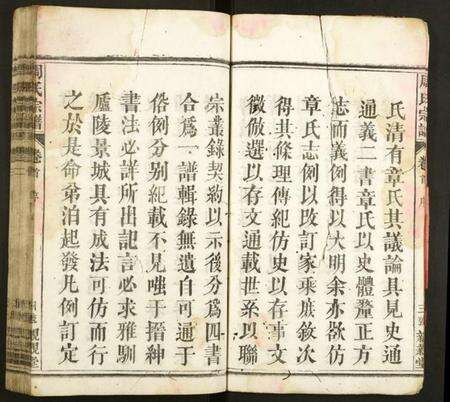 周氏宗譜
卷首
序
氏清有章氏其議論具見史通
通義二書章氏以史體釐正方
志而義例得以大明余亦欲仿
章氏志例以改訂家乘庶敘次
得其條理傳紀仿史以存事文
徵倣選以存文通載世系以聯
宗叢錄契約以示後分爲四書
合爲一譜輯錄無遺自可通于
俗例分别紀載不見嗤于搢紳
書法必詳所出記言必求雅馴
廬陵景城具有成法可仿而行
之於是命弟泊起發凡例訂定
周氏宗譜
卷首
序
二
親親堂